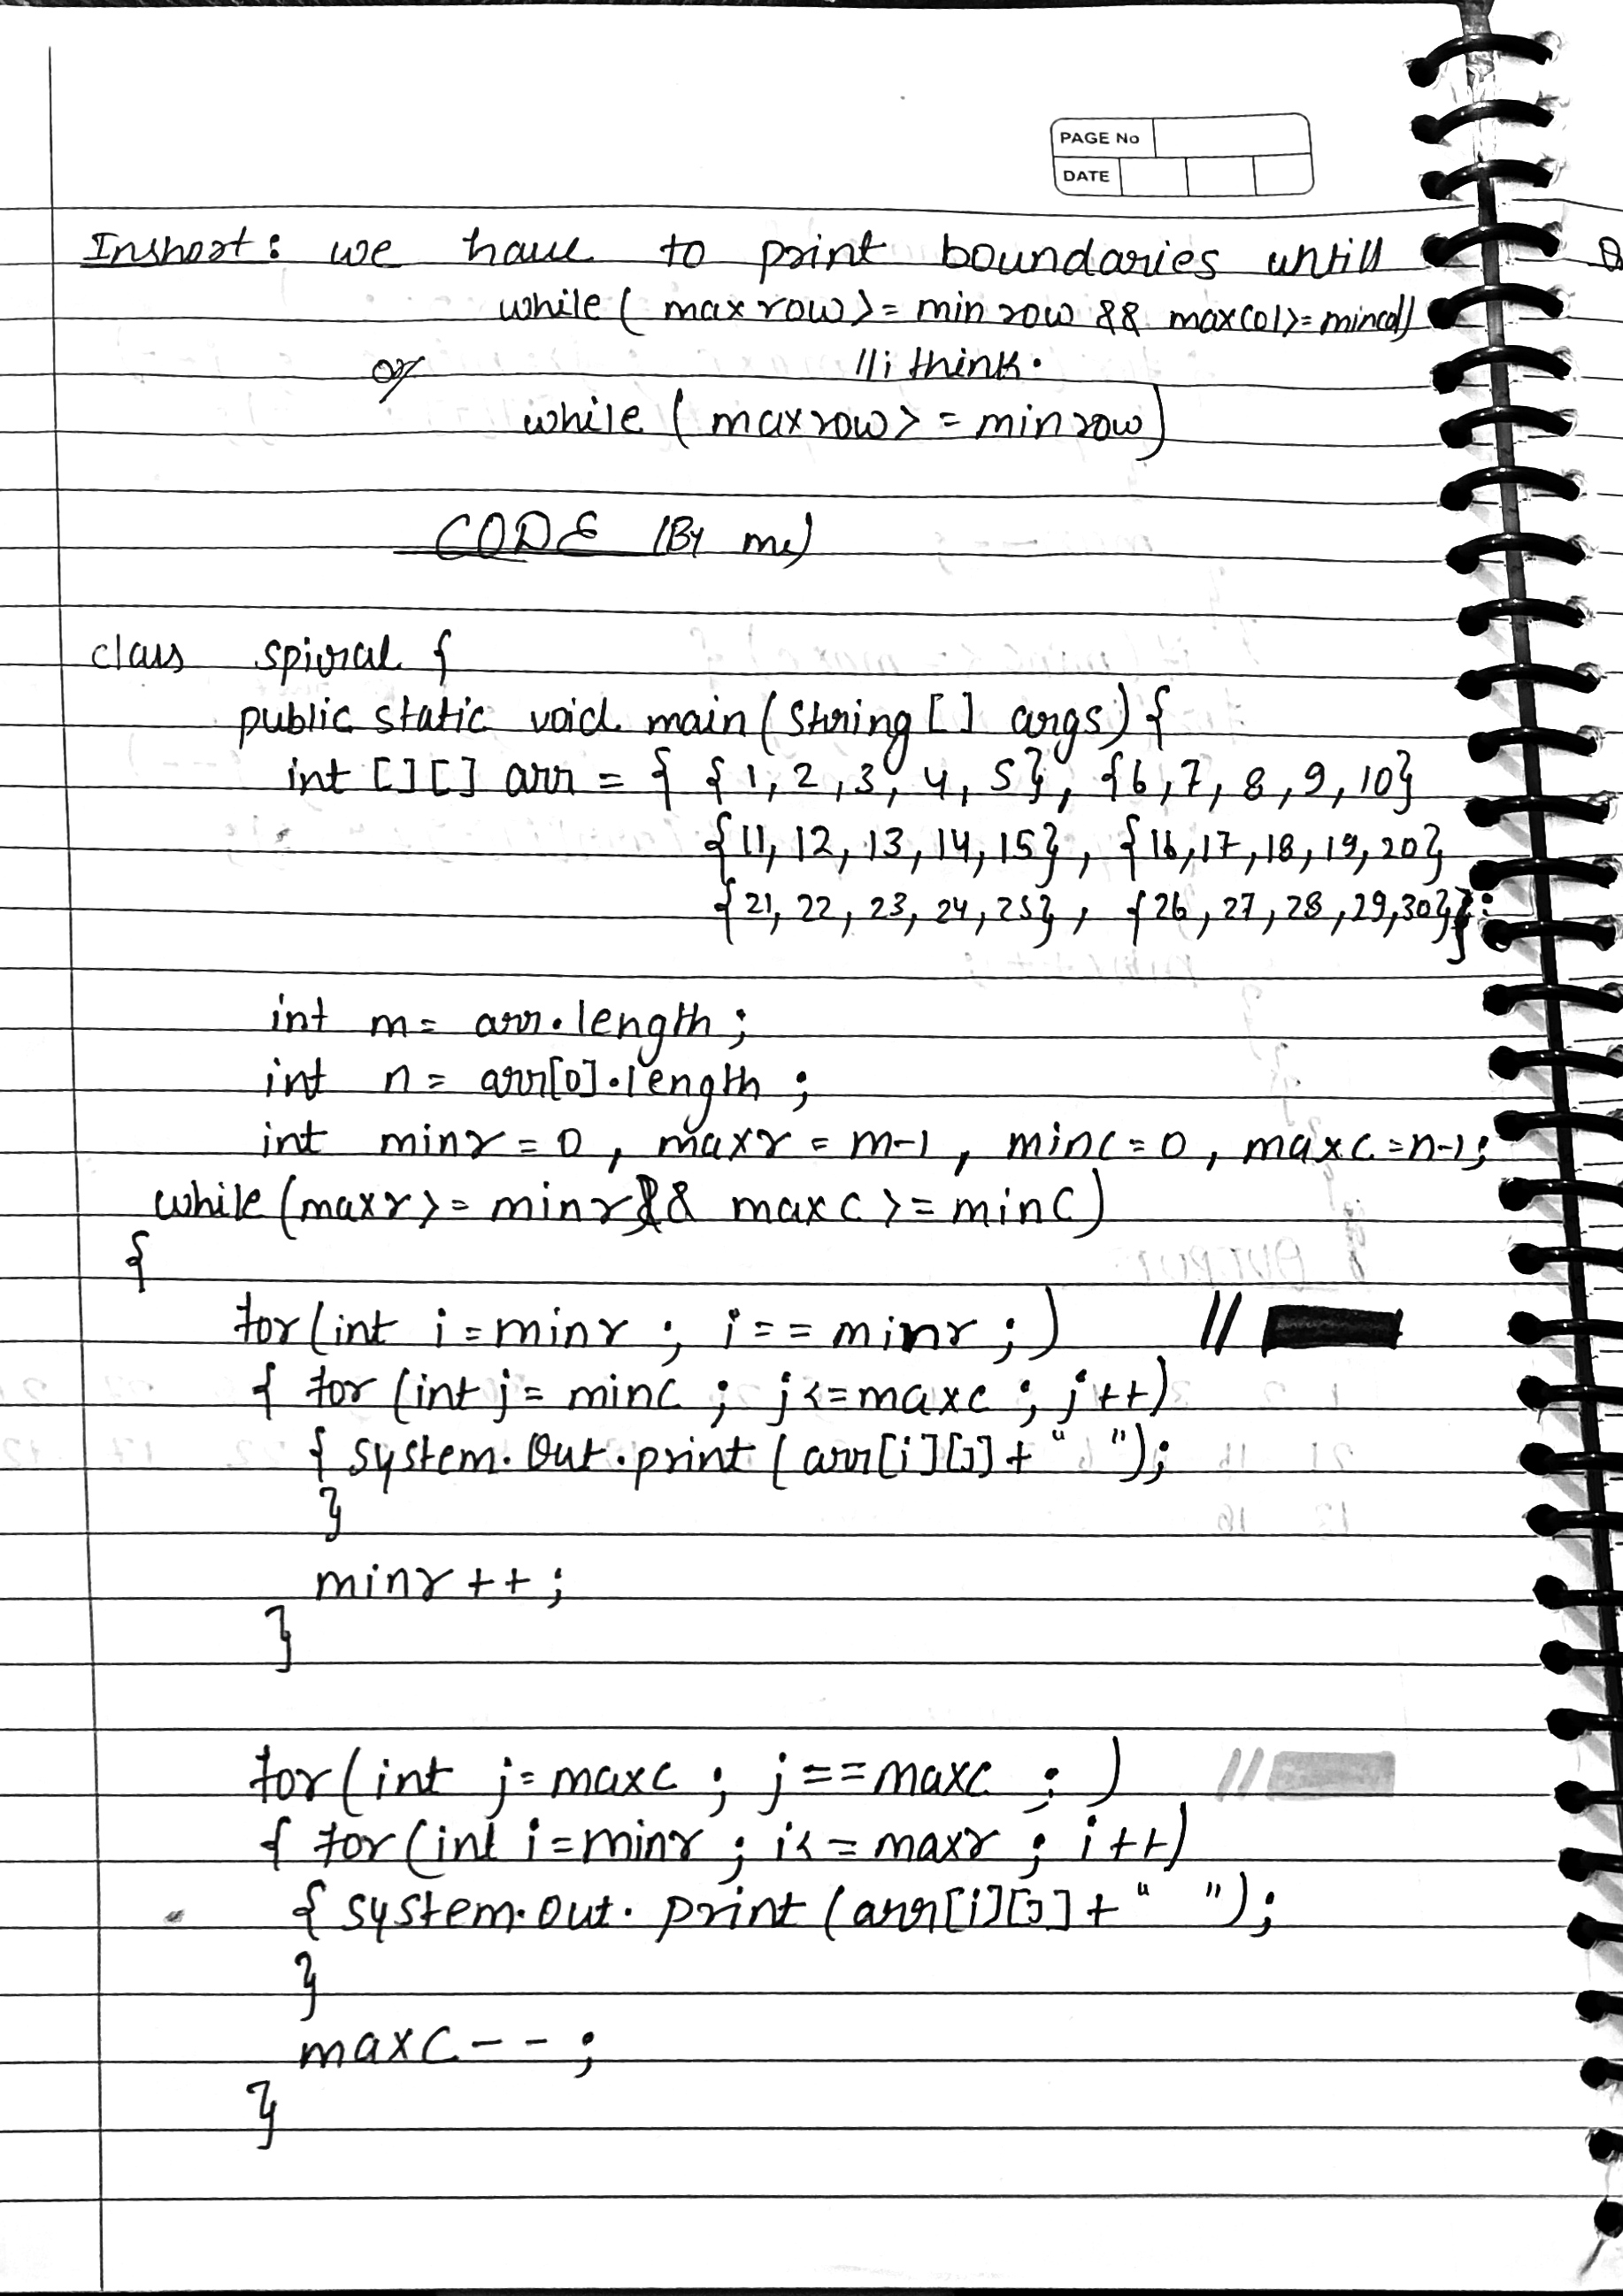 PAGE No
DATE
Inshort: we have to print boundaries untill
while ( max row >= min row && maxcol >= mincol)
or //i think.
while ( maxrow >= minrow)
CODE (By me)
class spiral {
public static void main (String [] args) {
int [][] arr = { {1, 2, 3, 4, 5}, {6, 7, 8, 9, 10}
{11, 12, 13, 14, 15}, {16, 17, 18, 19, 20}
{21, 22, 23, 24, 25}, {26, 27, 28, 29, 30}};
int m = arr.length;
int n = arr[0].length;
int minr = 0, maxr = m-1, minc = 0, maxc = n-1;
while (maxr >= minr && maxc >= minc)
{
for (int i = minr ; i == minr ; ) //
{ for (int j = minc ; j <= maxc ; j++)
{ system.Out.print (arr[i][j] + " ");
}
minr ++;
}
for (int j = maxc ; j == maxc ; ) //
{ for (int i = minr ; i <= maxr ; i++)
{ system.out.print (arr[i][j] + " ");
}
maxc --;
}